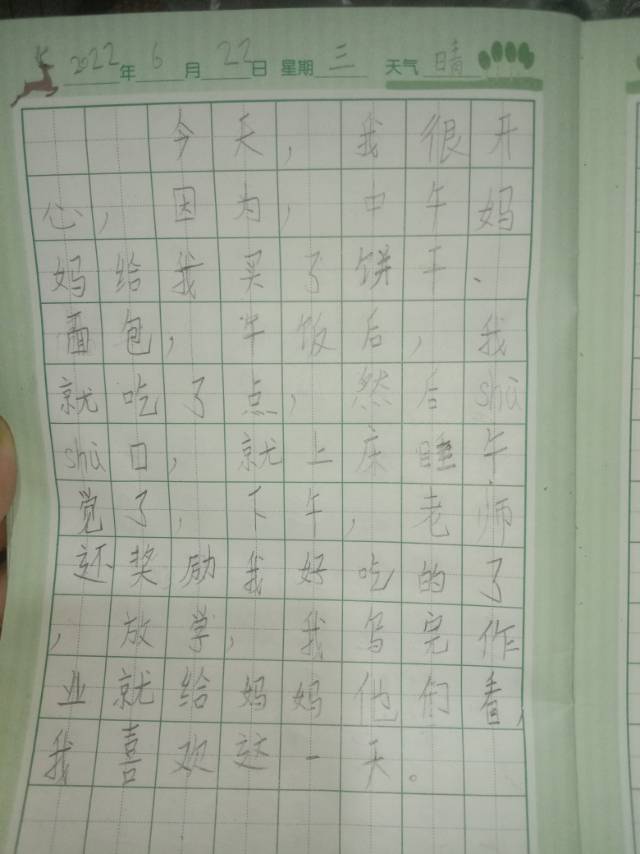 2022年6月22日 星期三 天气晴
今天,我很开
心,因为,中午妈
妈给我买了饼干、
面包,午饭后,我
就吃了点,然后shù
shù口,就上床睡午
觉了,下午,老师
还奖励我好吃的了
,放学,我写完作
业就给妈妈他们看,
我喜欢这一天。